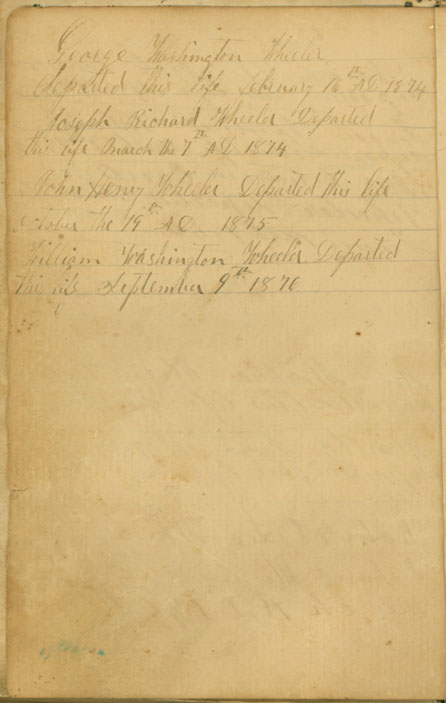 George Washington Wheeler
departed this life February 18th AD 1874
Joseph Richard Wheeler Departed
this life March the 7th AD 1874
John Henry Wheeler Departed this life
october the 19th AD 1875
William Washington Wheeler Departed
this life September 9th 1876